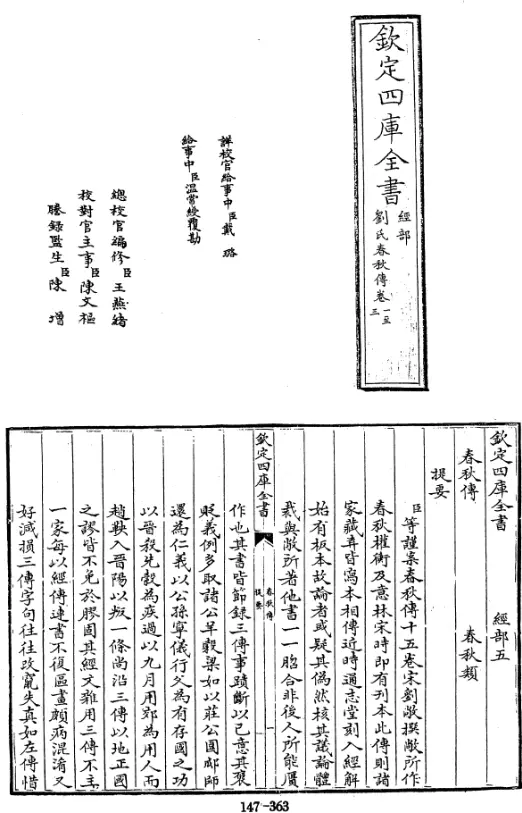 欽定四庫全書
經部
劉氏春秋傳卷一至三
詳校官給事中臣戴璐
給事中臣溫常綬覆勘
總校官編修臣王燕緒
校對官主事臣陳文樞
謄錄監生臣陳墉
欽定四庫全書　經部五
春秋傳　春秋類
提要
臣等謹案春秋傳十五卷宋劉敞撰敞所作
春秋權衡及意林宋時即有刊本此傳則諸
家藏弆皆寫本相傳近時通志堂刻入經解
始有板本故論者或疑其偽然核其議論體
裁與敞所著他書一一脗合非後人所能贋
欽定四庫全書　春秋傳　提要　一
作也其書皆節錄三傳事蹟斷以己意其褒
貶義例多取諸公羊穀梁如以莊公圍郕師
還為仁義以公孫寧儀行父為有存國之功
以晉殺先縠為疾過以九月用郊為用人而
趙鞅入晉陽以叛一條尚沿三傳以地正國
之謬皆不免於膠固其經文雜用三傳不主
一家每以經傳連書不復區畫頗病混淆又
好減損三傳字句往往改竄失真如左傳惜
147-363